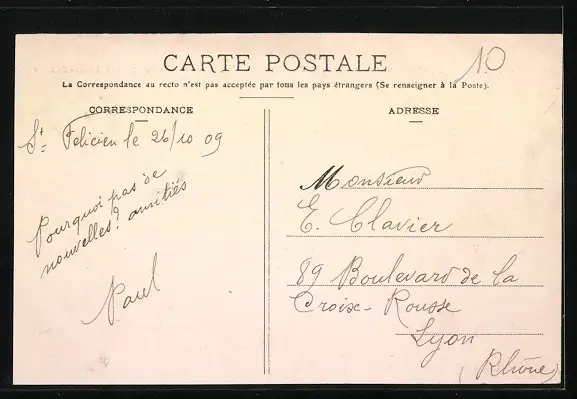 10
CARTE POSTALE
La Correspondance au recto n'est pas acceptée par tous les pays étrangers (Se renseigner à la Poste).
CORRESPONDANCE
St Felicien le 26/10 09
Pourquoi pas de
nouvelles? amitiés
Paul
ADRESSE
Monsieur
E. Clavier
89 Boulevard de la
Croix-Rousse
Lyon
(Rhône)